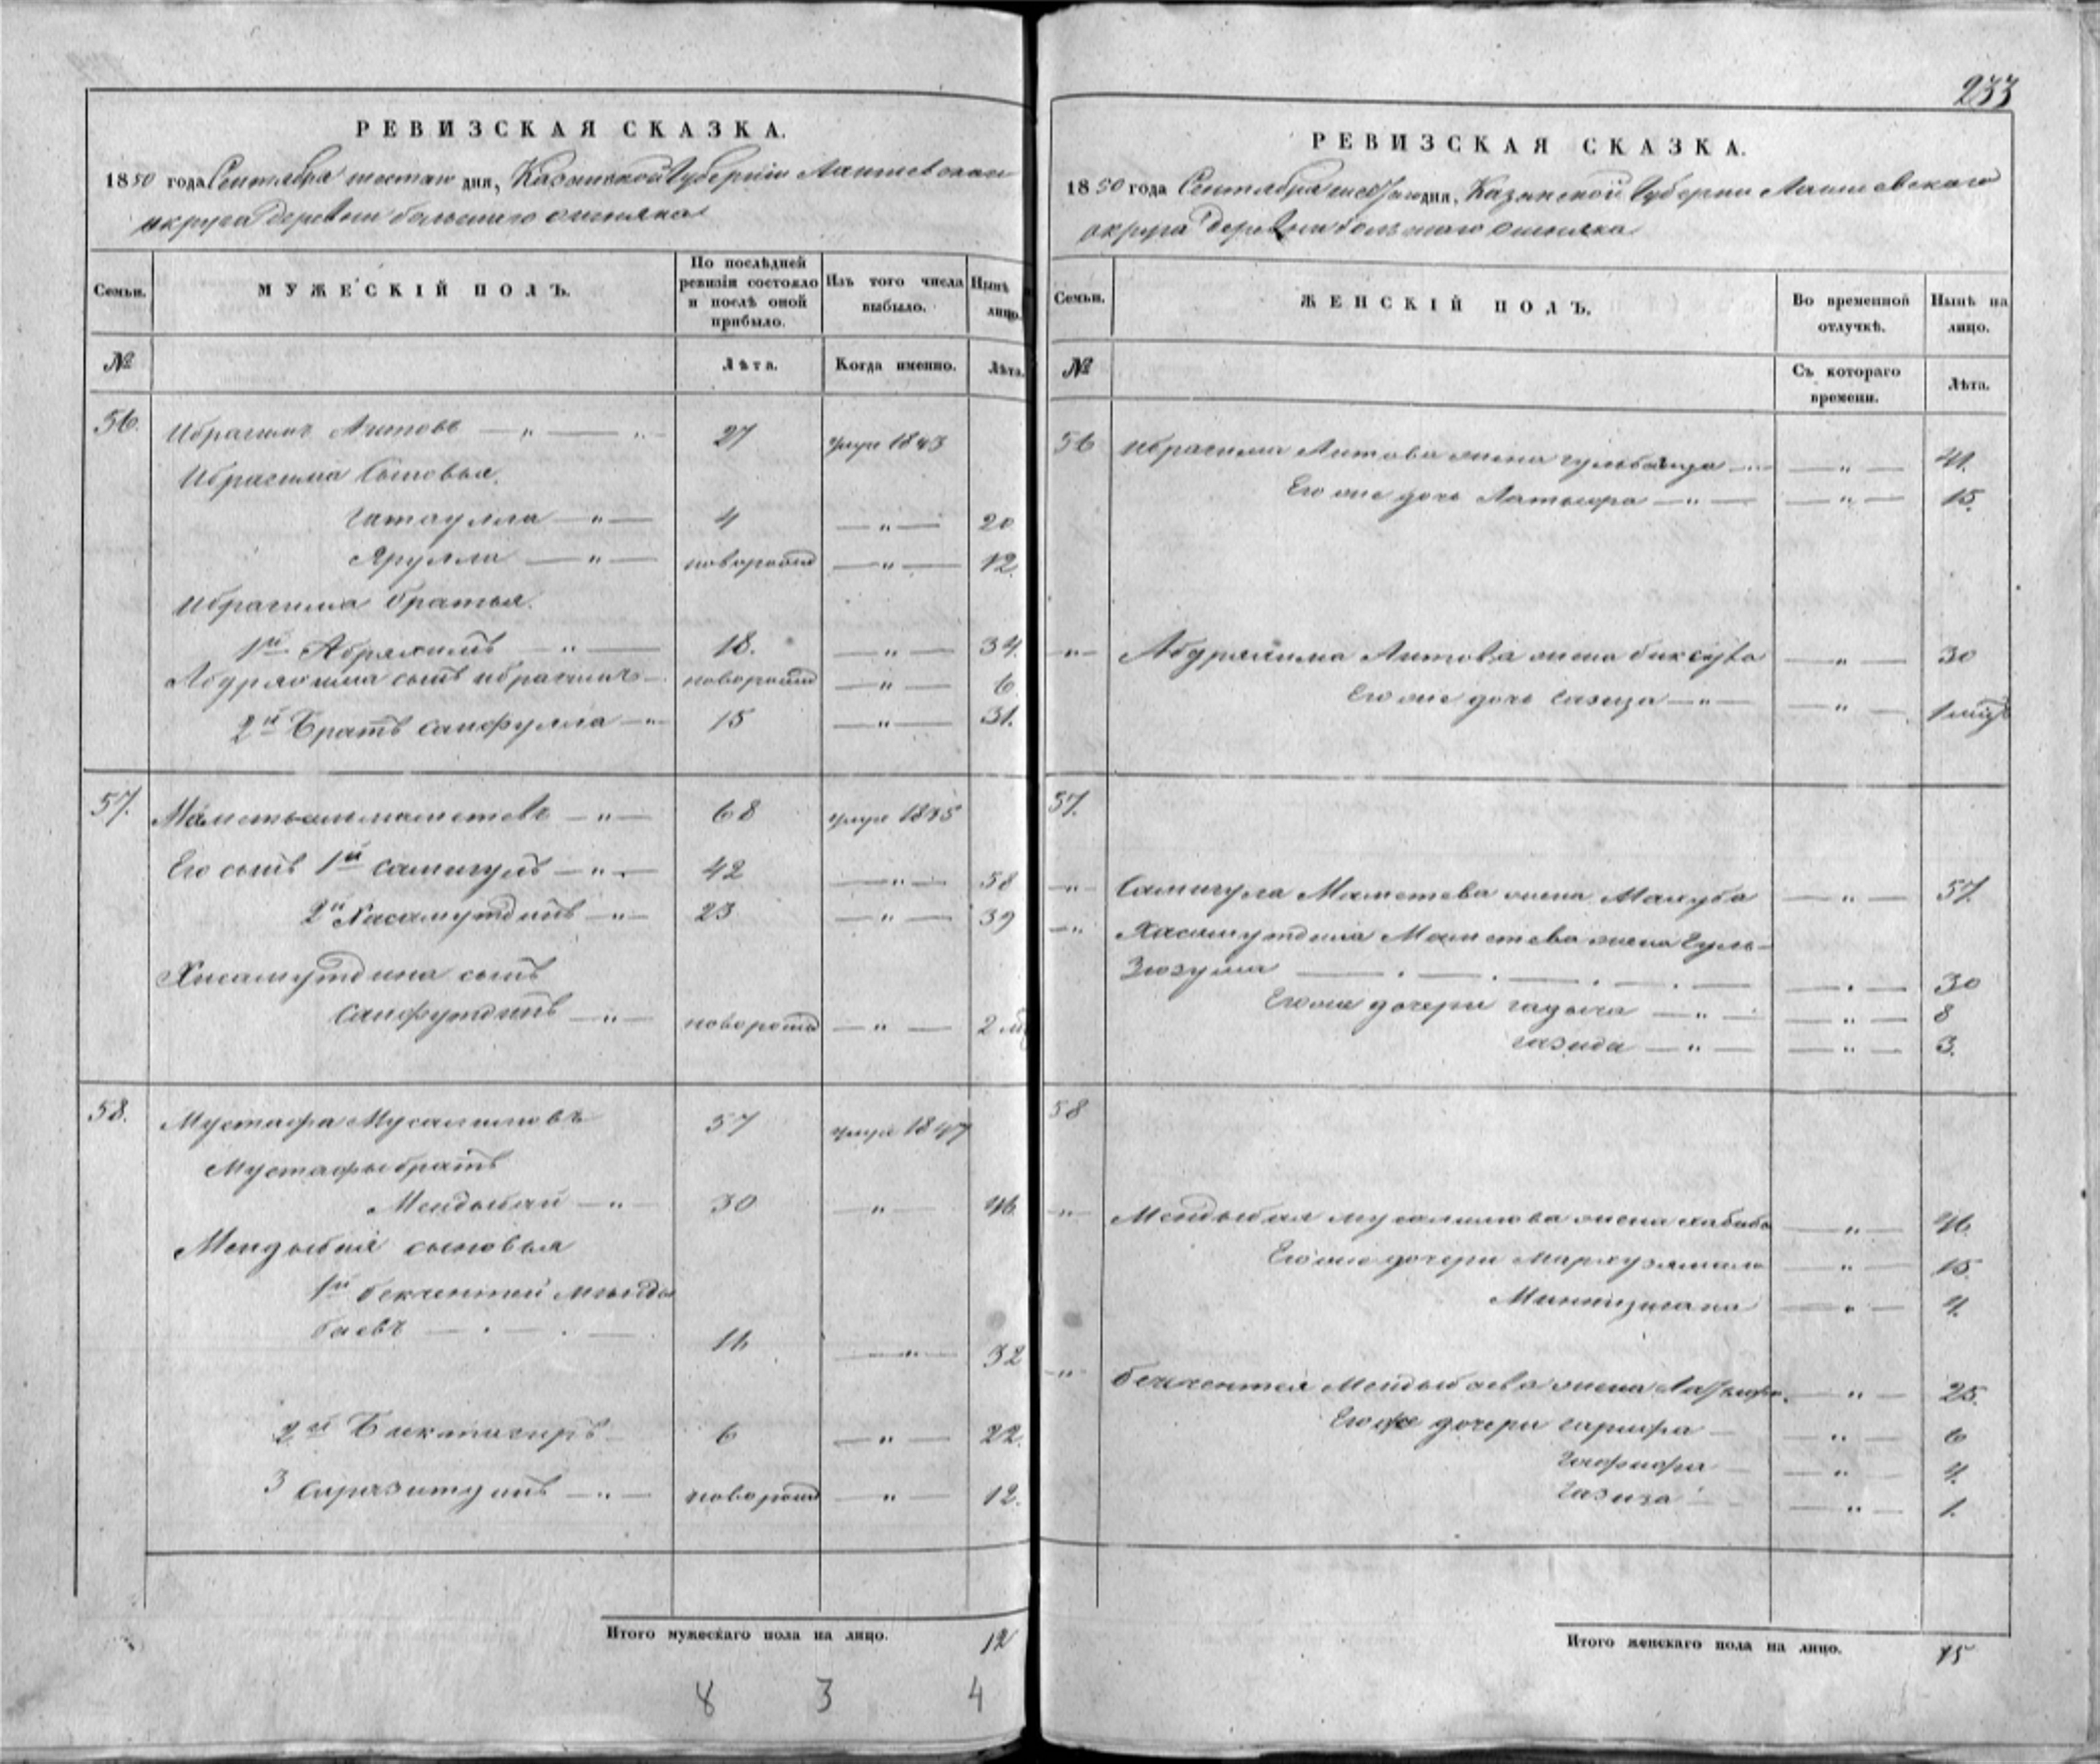 РЕВИЗСКАЯ СКАЗКА.
1850 года Сентября шестаго дня, Казанской Губернiи Лаишевскаго
округа деревни большаго ошняка
Семьи.
МУЖЕСКIЙ ПОЛЪ.
По послѣдней ревизiи состояло и послѣ оной прибыло.
Изъ того числа выбыло.
Нынѣ лицо.
№
Лѣта.
Когда именно.
Лѣта.
56. Ибрагимъ Аитовъ — „ — „ — 27 умре 1843
Ибрагима Сыновья.
Гатаулла — „ — 4 — „ — 20
Ярулла — „ — новорожд — „ — 12.
Ибрагима братья.
1й Абряхимъ — „ — 18. — „ — 34.
Абдряхима сынъ ибрагимъ — новорожд — „ — 6
2й Братъ саифулла — „ 15 — „ — 31.
57. Маметьевъ — „ — 68 умре 1835
Его сынъ 1й самигулъ — „ — 42 — „ — 58
2й Хасамутдинъ — „ — 23 — „ — 39
Хисамутдина сынъ
саифутдинъ — „ — новорожд — „ — 2 мѣ
58. Мустафа Мусалимовъ 57 умре 1847
Мустафы братъ
Мендыбай — „ — 30 — „ — 46
Мендыбая сыновья
1й бекчентей менды
баевъ — . — . — 16 — „ — 32
2й Биктагиръ — 6 — „ — 22.
3 сиразитдинъ — „ — новорожд — „ — 12.
Итого мужескаго пола на лицо. 12
8 3 4
233
РЕВИЗСКАЯ СКАЗКА.
1850 года Сентября шестаго дня, Казанской Губернiи Лаишевскаго
округа деревни большаго ошняка
Семьи.
ЖЕНСКIЙ ПОЛЪ.
Во временной отлучкѣ.
Нынѣ на лицо.
№
Съ котораго времени.
Лѣта.
56 Ибрагима Аитова жена — „ — 41.
Его же дочь Латыфа — „ — — „ — 15.
— „ — Абдряхима Аитова жена — „ — 30
Его же дочь Газиза — „ — — „ — 1 мѣ
57.
— „ — Самигула Маметева жена Махуба — „ — 57.
— „ — Хасамутдина Маметева жена Гуль-
Зюзума — . — . — . — . — — . — 30
Его же дочери гадыча — „ — — „ — 8
газида — „ — — „ — 3.
58
— „ — Мендыбая мусалимова жена хабиба — „ — 46.
Его же дочери — „ — 15.
— „ — 4.
— „ — бекчентея Мендыбаева жена Латыфа. — „ — 25.
Его же дочери гарифа — — „ — 6
Гафифа — — „ — 4.
Газиза — — „ — 1.
Итого женскаго пола на лицо. 15